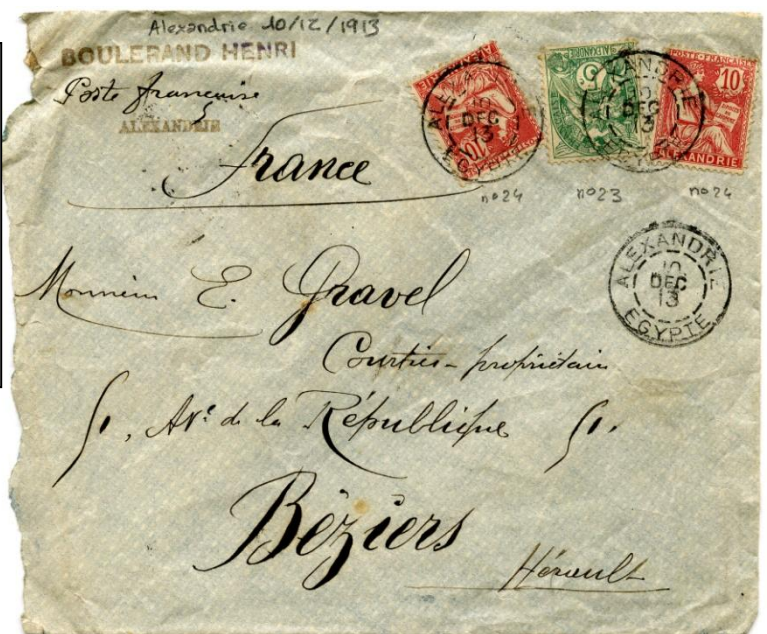 Alexandrie 10/12/1913
BOULERAND HENRI
Poste française
ALEXANDRIE
France
10
ALEXANDRIE
10
DEC
13
EGYPTE
5
ALEXANDRIE
10
DEC
13
EGYPTE
POSTE FRANÇAISE
10
ALEXANDRIE
no 24
no 23
no 24
ALEXANDRIE
10
DEC
13
EGYPTE
Monsieur E. Gravel
Courtier-propriétaire
Avᵉ de la République
Béziers
Hérault